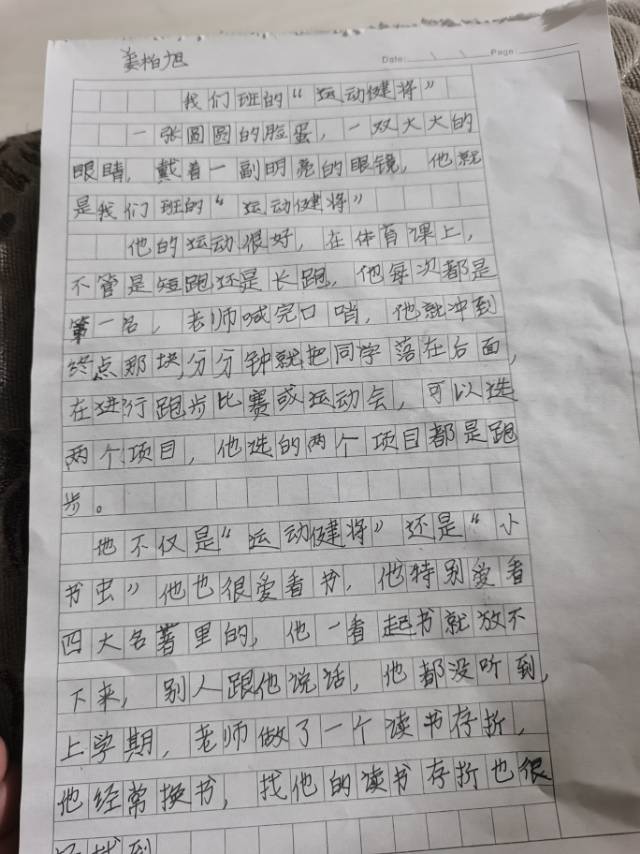 姜柏旭
Date: Page:
我们班的“运动健将”
一张圆圆的脸蛋，一双大大的
眼睛，戴着一副明亮的眼镜，他就
是我们班的“运动健将”
他的运动很好，在体育课上，
不管是短跑还是长跑，他每次都是
第一名，老师喊完口哨，他就冲到
终点那块，分分钟就把同学落在后面，
在进行跑步比赛或运动会，可以选
两个项目，他选的两个项目都是跑
步。
他不仅是“运动健将”还是“小
书虫”他也很爱看书，他特别爱看
四大名著里的，他一看起书就放不
下来，别人跟他说话，他都没听到，
上学期，老师做了一个读书存折，
他经常换书，找他的读书存折也很
找到